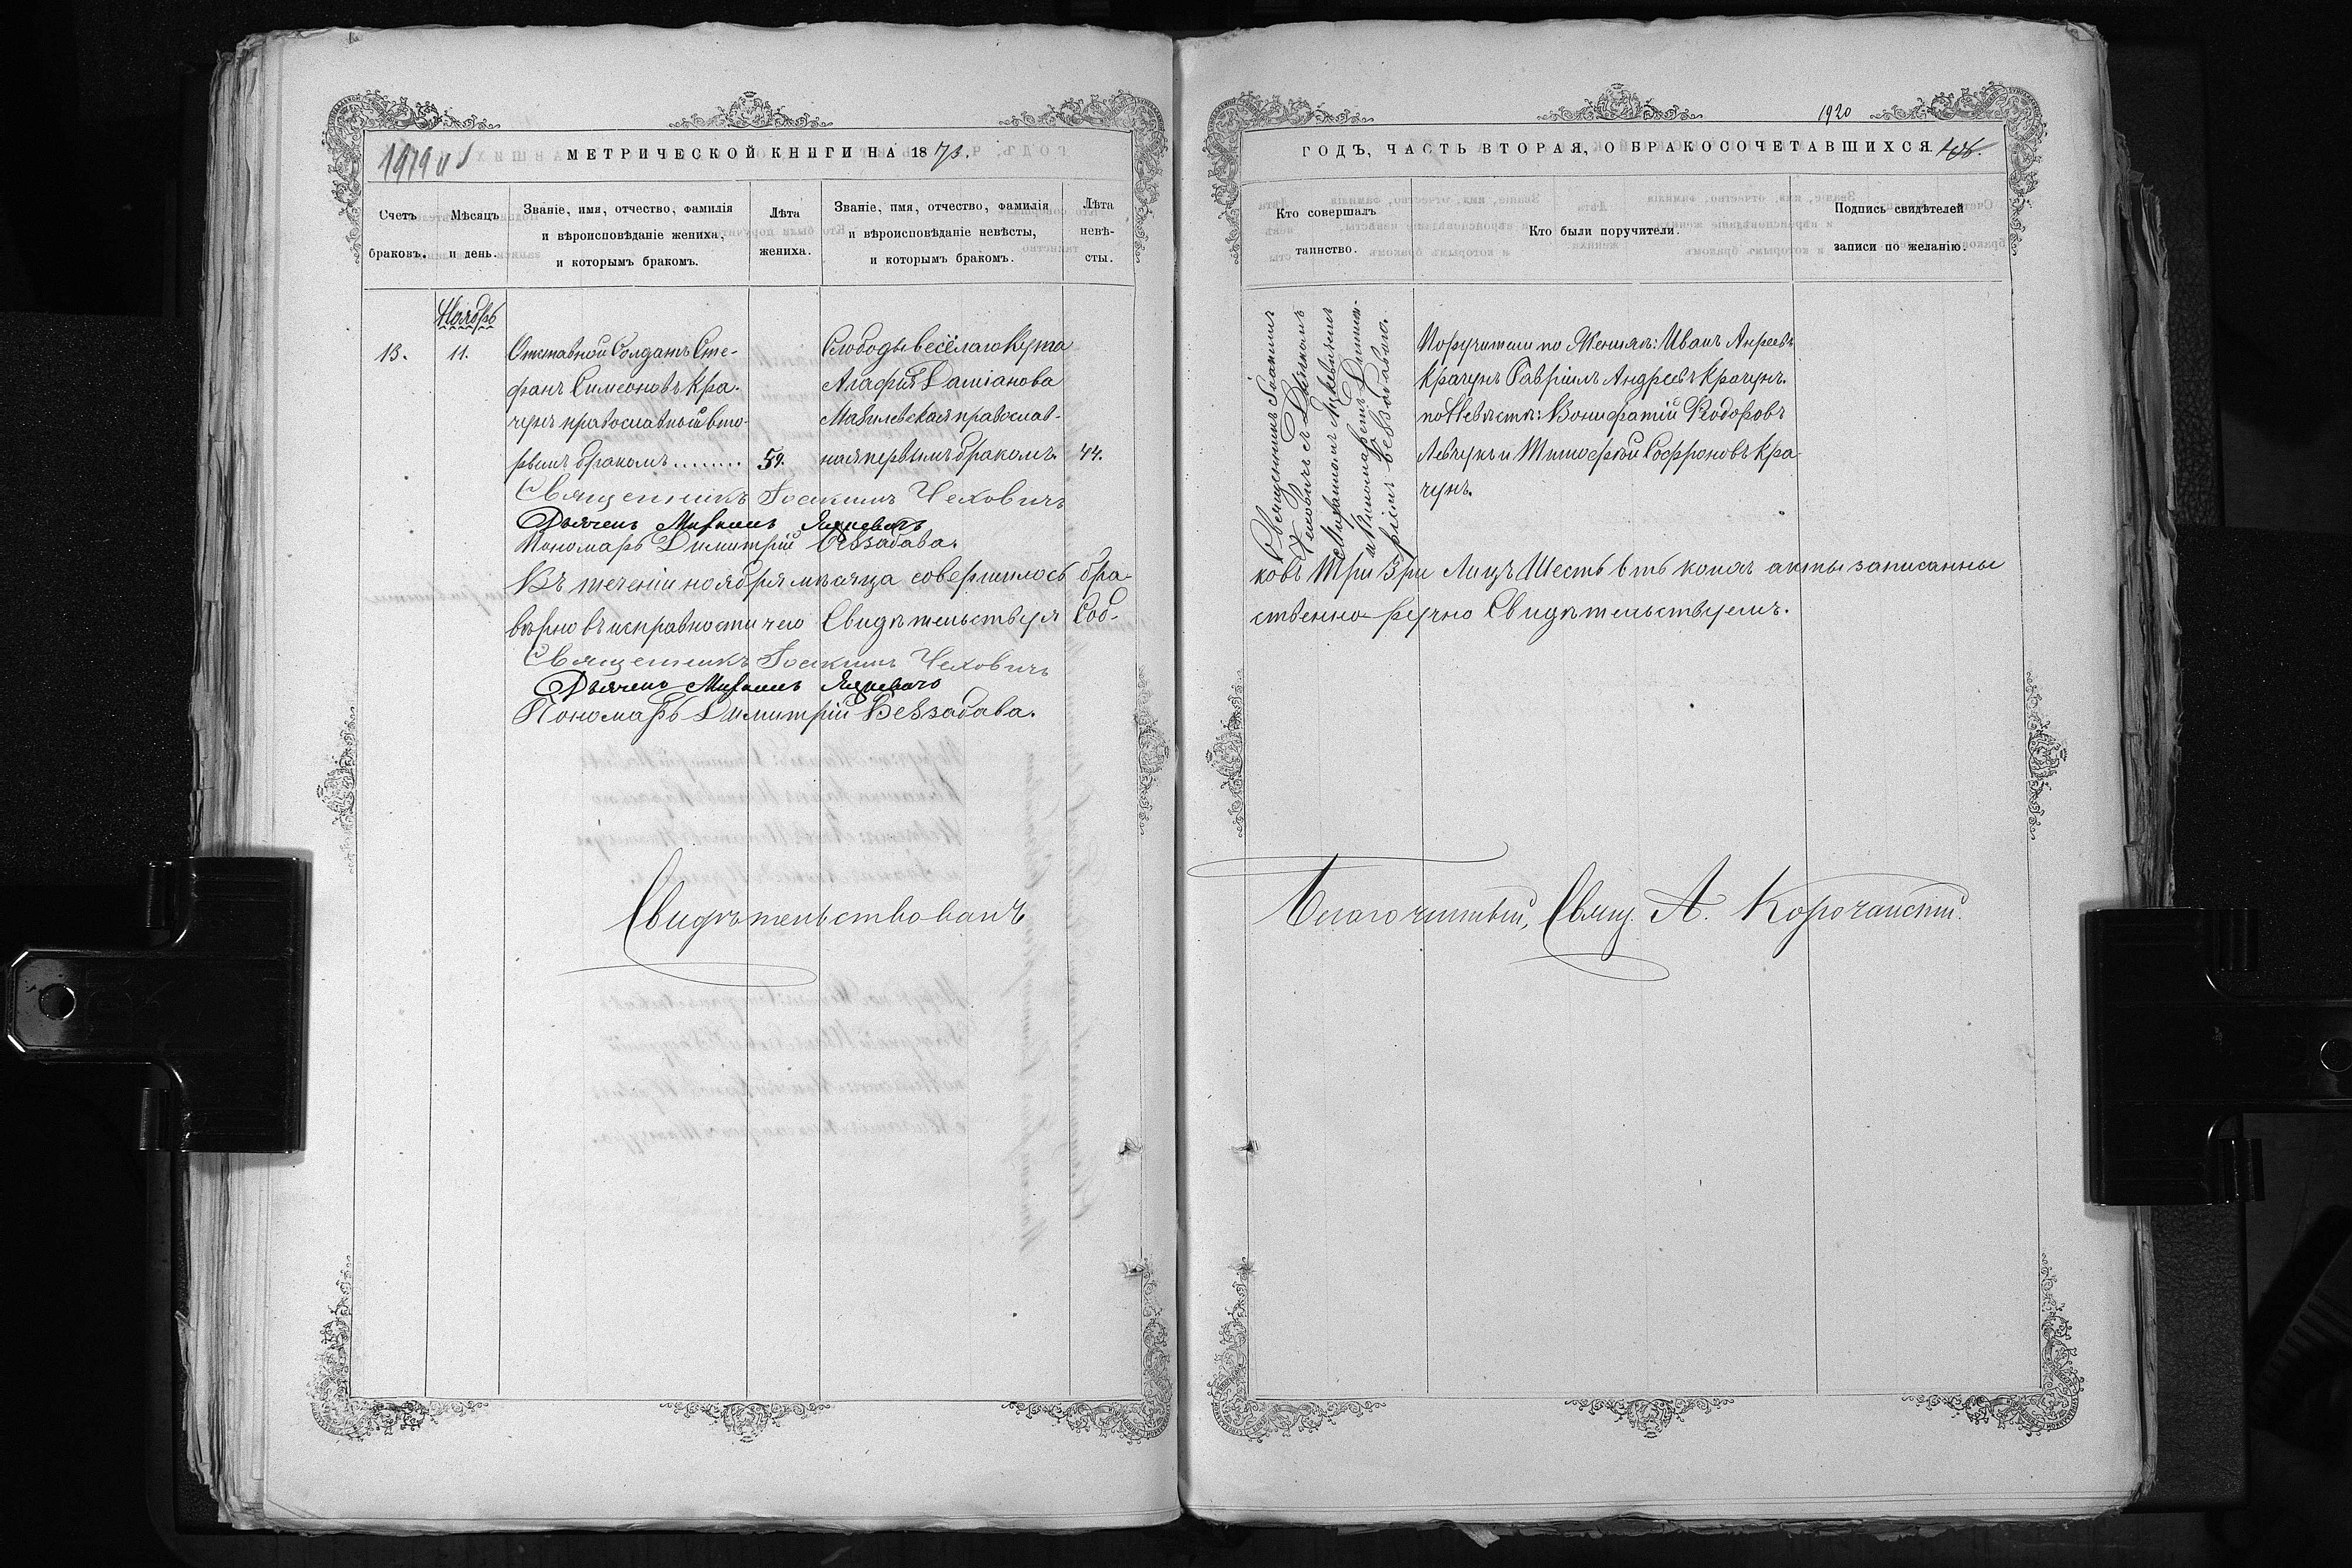 1919 об
МЕТРИЧЕСКОЙ КНИГИ НА 1873.
Счетъ браковъ.
Мѣсяцъ и день.
Званіе, имя, отчество, фамилія и вѣроисповѣданіе жениха, и которымъ бракомъ.
Лѣта жениха.
Званіе, имя, отчество, фамилія и вѣроисповѣданіе невѣсты, и которымъ бракомъ.
Лѣта невѣ-
сты.
Ноябрь
13.
11.
Отставной Солдатъ Сте-
фанъ Симеоновъ Кра-
чунъ православный вто-
рымъ бракомъ........
59.
Слободы Весёлаго Кута
Агафия Даміанова
Могилевская православ-
ная первымъ бракомъ.
44.
Священникъ Іоакимъ Чеховичъ
Дьячекъ Михаилъ Яцкевичъ
Пономарь Димитрій Беззабава.
Въ теченіи ноября мѣсяца совершилось бра-
вѣрно въ исправности чего Свидѣтельствуя Соб-
Священникъ Іоакимъ Чеховичъ
Дьячекъ Михаилъ Яцкевичъ
Пономарь Димитрій Беззабава.
Свидѣтельствовалъ
1920
ГОДЪ, ЧАСТЬ ВТОРАЯ, О БРАКОСОЧЕТАВШИХСЯ
Кто совершалъ таинство.
Кто были поручители.
Подпись свидѣтелей записи по желанію.
Священникъ Іоакимъ
Чеховичъ съ Дьячкомъ
Михаиломъ Яцкевичемъ
и Пономаремъ Димит-
ріемъ Беззабавою.
Поручители по Женихѣ: Иванъ Анреевъ
Крачунъ Гавріилъ Андреевъ Крачунъ.
по Невѣстѣ: Вонифатій Феодоровъ
Левчукъ и Тимофѣй Софроновъ Кра-
чунъ.
ковъ Три 3 ри Лицъ Шесть 6 ть коихъ акты записанны
ственно-ручно Свидѣтельствуемъ.
Благочинный, Свящ. А. Корочанскій.